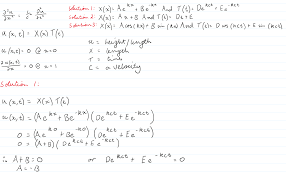 ∂²u/∂x² = 1/c² ∂²u/∂t²
Solution 1: X(x) = Ae^kx + Be^-kx And T(t) = De^kct + Ee^-kct
Solution 2: X(x) = Ax + B And T(t) = Dt + E
Solution 3: X(x) = A cos(kx) + B sin(kx) And T(t) = D cos(kct) + E sin(kct)
u(x,t) = X(x) T(t)
u(x,t) = 0 @ x=0
u = height/length
x = length
t = time
c = a velocity
Solution 1:
u(x,t) = X(x) T(t)
u(x,t) = (Ae^kx + Be^-kx)(De^kct + Ee^-kct)
0 = (Ae^k0 + Be^-k0)(De^kct + Ee^-kct)
0 = (A+B)(De^kct + Ee^-kct)
∴ A+B=0 or De^kct + Ee^-kct = 0
A=-B